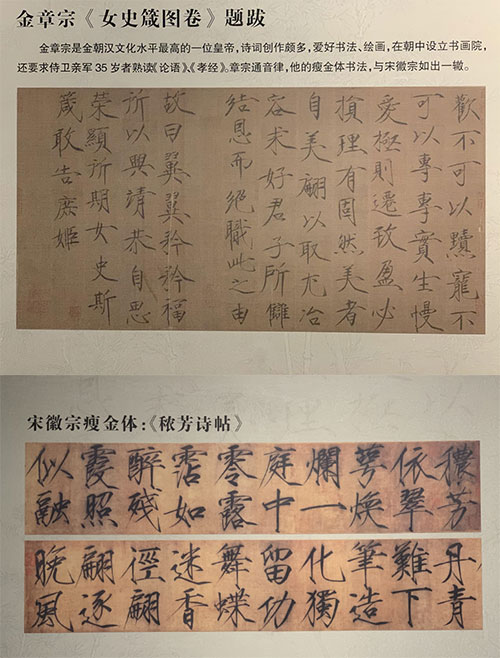 金章宗《女史箴图卷》题跋
金章宗是金朝汉文化水平最高的一位皇帝，诗词创作颇多，爱好书法、绘画，在朝中设立书画院，
还要求侍卫亲军35岁者熟读《论语》、《孝经》。章宗通音律，他的瘦金体书法，与宋徽宗如出一辙。
歡不可以黷寵不
可以專專實生慢
愛極則遷致盈必
損理有固然美者
自美翩以取尤冶
容求好君子所讎
結恩而絕職此之由
故曰翼翼矜矜福
所以興靖恭自思
榮顯所期女史斯
箴敢告庶姬
宋徽宗瘦金体：《秾芳诗帖》
穠芳
依翠
萼煥
爛一
庭中
零露
霑如
醉殘
霞照
似融
丹青
難下
筆造
化獨
留功
舞蝶
迷香
徑翩
翩逐
晚風